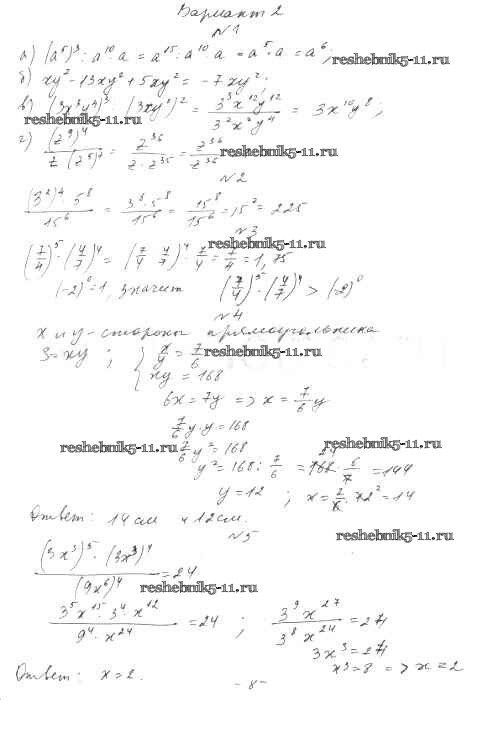 Вариант 2
N1
а) (a⁵)³ : a¹⁰ · a = a¹⁵ : a¹⁰ · a = a⁵ · a = a⁶;
reshebnik5-11.ru
б) xy² - 13xy² + 5xy² = -7xy²;
в) (3x⁴y⁴)³ : (3xy²)² = 3³x¹²y¹² / 3²x²y⁴ = 3x¹⁰y⁸;
reshebnik5-11.ru
г) (z⁹)⁴ / z · (z⁵)⁷ = z³⁶ / z · z³⁵ = z³⁶ / z³⁶
reshebnik5-11.ru
N2
(3²)⁴ · 5⁸ / 15⁶ = 3⁸ · 5⁸ / 15⁶ = 15⁸ / 15⁶ = 15² = 225
N3
reshebnik5-11.ru
(7/4)⁵ · (4/7)⁴ = (7/4 · 4/7)⁴ · 7/4 = 7/4 = 1,75
(-2)⁰ = 1, значит (7/4)⁵ · (4/7)⁴ > (-2)⁰
N4
x и y - стороны прямоугольника
S = xy ; { x/y = 7/6
reshebnik5-11.ru
xy = 168
6x = 7y => x = 7/6 y
7/6 y · y = 168
reshebnik5-11.ru 7/6 y² = 168 reshebnik5-11.ru
y² = 168 : 7/6 = 168 · 6/7 = 144
y = 12 ; x = 7/6 · 12² = 14
Ответ: 14 см и 12 см.
N5
reshebnik5-11.ru
(3x³)⁵ · (3x³)⁴ / (9x⁶)⁴ = 24
reshebnik5-11.ru
3⁵x¹⁵ · 3⁴ · x¹² / 9⁴ · x²⁴ = 24 ; 3⁹x²⁷ / 3⁸x²⁴ = 24
3x³ = 24
x³ = 8 => x = 2
Ответ: x = 2.
- 8 -